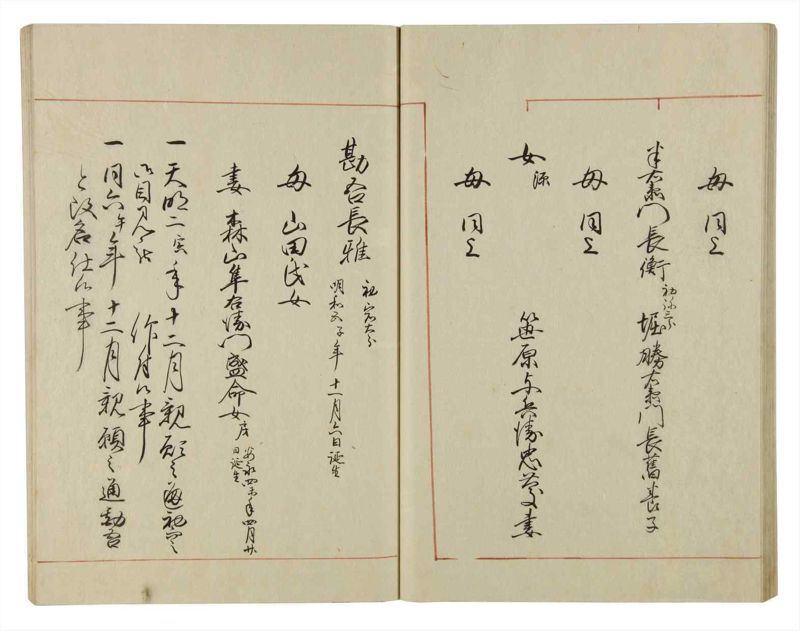 母 同上
半右衛門長衡 初弥三郎 堀勝右衛門長舊養子
母 同上
女 源 笹原与兵衛忠 妻
母 同上
勘吾長雅 初 明和五子年十一月六日誕生
母 山田氏女
妻 森山隼右衛門盛命女 安永四未年四月廿 日誕生
一天明二寅年十二月親願之通初而之
御目見被 仰付候事
一同六午年十二月親願之通勘吾
と改名仕候事